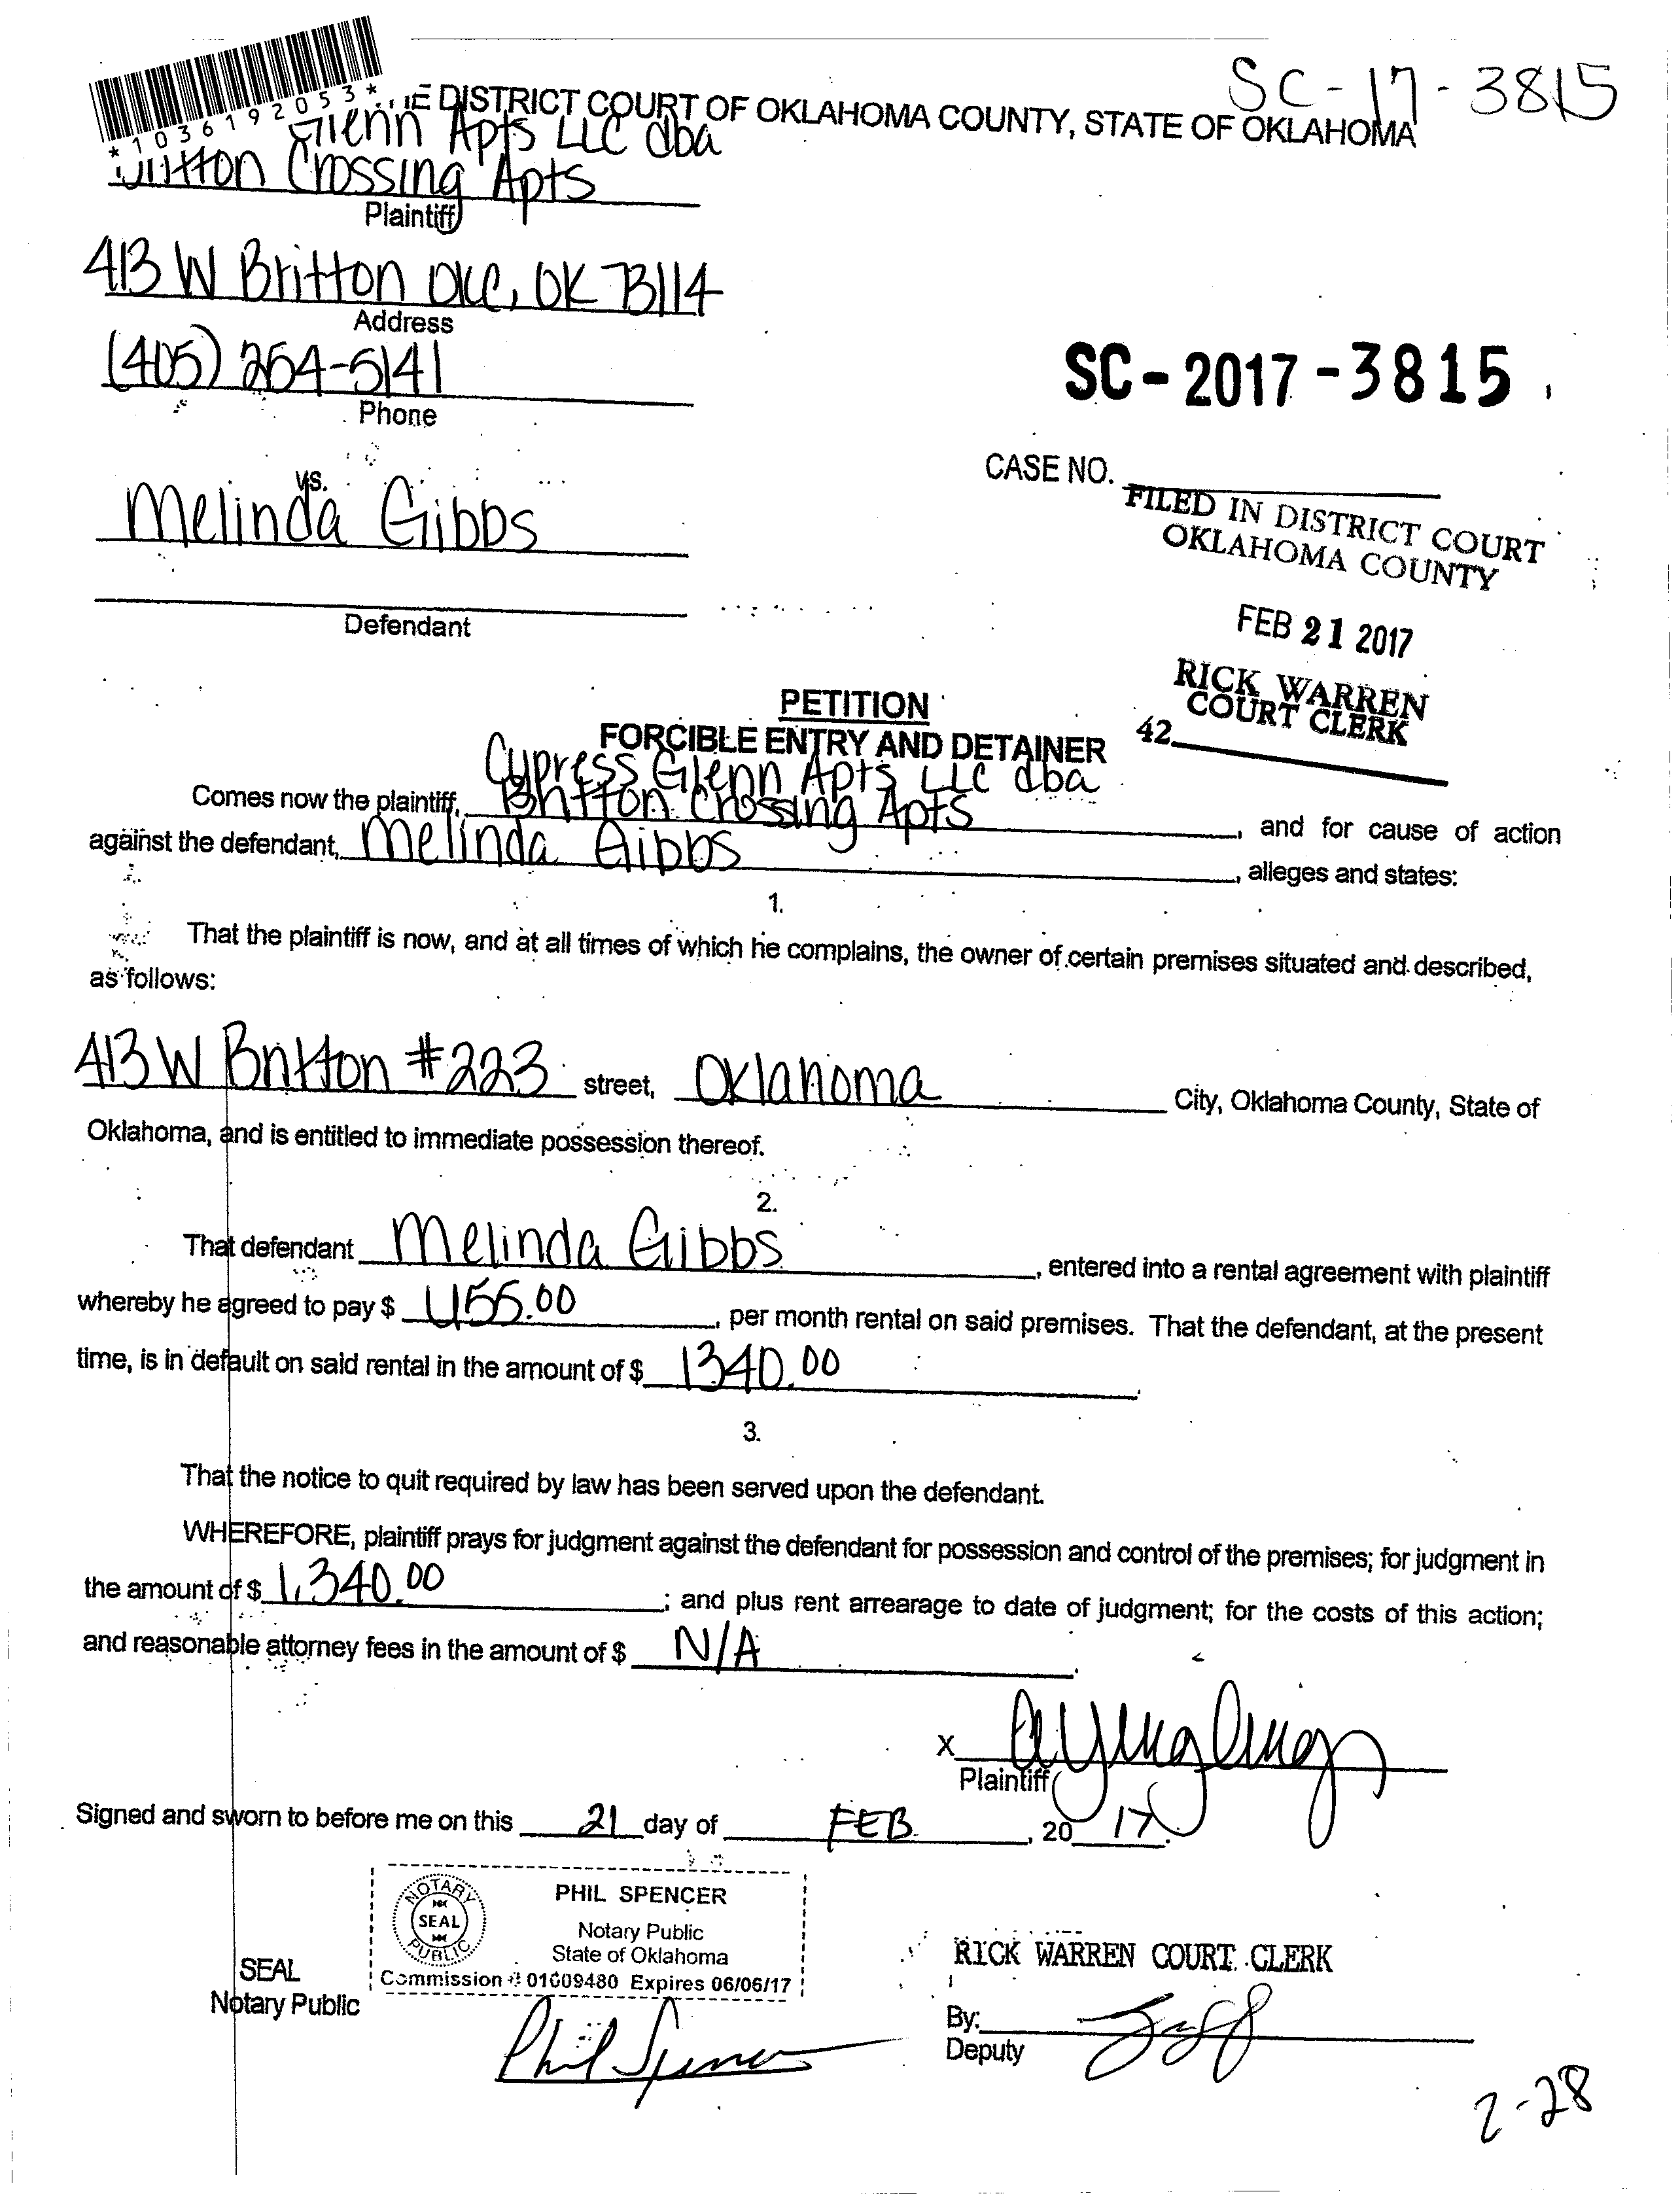 SC-17-3815
*1036192053*
E DISTRICT COURT OF OKLAHOMA COUNTY, STATE OF OKLAHOMA
Glenn Apts LLC dba
Britton Crossing Apts
Plaintiff
413 W Britton OKC, OK 73114
Address
(405) 254-5141
Phone
SC-2017-3815
CASE NO.
vs.
Melinda Gibbs
Defendant
FILED IN DISTRICT COURT
OKLAHOMA COUNTY
FEB 21 2017
RICK WARREN
COURT CLERK
42
PETITION
FORCIBLE ENTRY AND DETAINER
Cypress Glenn Apts LLC dba
Comes now the plaintiff, Britton Crossing Apts, and for cause of action
against the defendant, Melinda Gibbs, alleges and states:
1.
That the plaintiff is now, and at all times of which he complains, the owner of certain premises situated and described,
as follows:
413 W Britton #223 street, Oklahoma City, Oklahoma County, State of
Oklahoma, and is entitled to immediate possession thereof.
2.
That defendant Melinda Gibbs, entered into a rental agreement with plaintiff
whereby he agreed to pay $ 455.00, per month rental on said premises. That the defendant, at the present
time, is in default on said rental in the amount of $ 1340.00.
3.
That the notice to quit required by law has been served upon the defendant.
WHEREFORE, plaintiff prays for judgment against the defendant for possession and control of the premises; for judgment in
the amount of $ 1,340.00; and plus rent arrearage to date of judgment; for the costs of this action;
and reasonable attorney fees in the amount of $ N/A.
X
Plaintiff
Signed and sworn to before me on this 21 day of FEB, 20 17.
NOTARY PUBLIC
SEAL
PHIL SPENCER
Notary Public
State of Oklahoma
Commission # 01009480 Expires 06/06/17
SEAL
Notary Public
Phil Spencer
RICK WARREN COURT CLERK
By:
Deputy
2-28